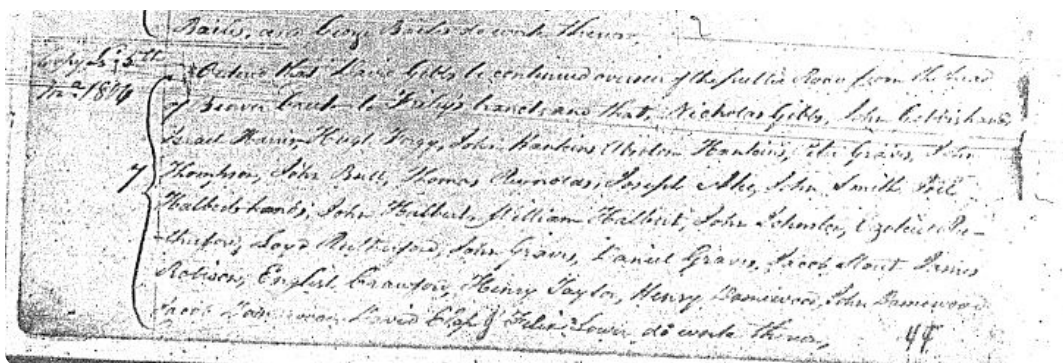 Bailes, and George Bailes do work thereon,
Copy Ss: 5th
Mar 1804
Ordered that David Gibbs be continued overseer of the public Road from the head
of Beaver Creek to Fraley's and that, Nicholas Gibbs, John
Israel Harris, John Hankins Absolom Hankins, Peter Graves, John
7 Thompson, John Bull, Thomas Reynolds, Joseph Ake, John Smith
Halberts hands, John Halbert, William Halbert, John
Loyd Rutherford, John Graves, Daniel Graves, Jacob Stout James
Robison, English Crawford, Henry Taylor, Henry Damewood, John Damewood
Jacob Damewood David & do work thereon,
44